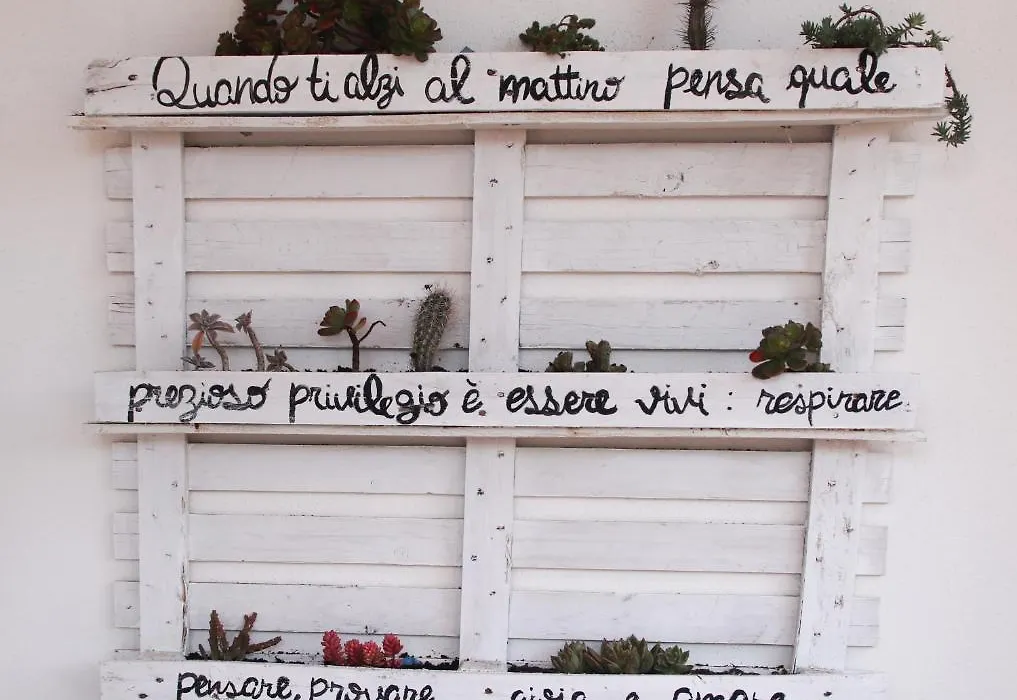 Quando ti alzi al mattino pensa quale
prezioso privilegio è essere vivi : respirare
pensare, provare gioia e amare